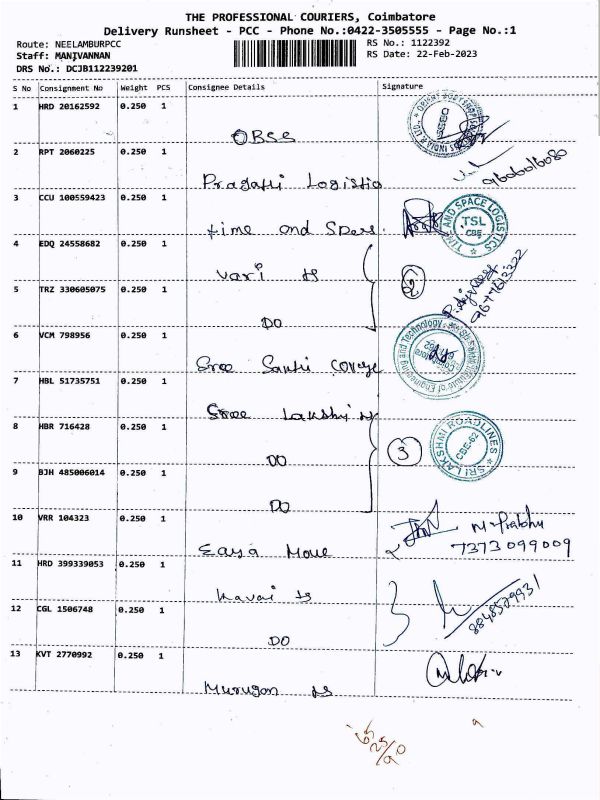 THE PROFESSIONAL COURIERS, Coimbatore
Delivery Runsheet - PCC - Phone No.:0422-3505555 - Page No.:1
Route: NEELAMBURPCC
RS No.: 1122392
Staff: MANIVANNAN
RS Date: 22-Feb-2023
DRS No.: DCJB112239201
S No Consignment No Weight PCS Consignee Details Signature
1 HRD 20162592 0.250 1
OBSS
2 RPT 2060225 0.250 1
9606016080
3 CCU 100559423 0.250 1
time and
TIME AND SPACE LOGISTICS
TSL
CBE
4 EDQ 24558682 0.250 1
Vari
2
9677613322
5 TRZ 330605075 0.250 1
DO
6 VCM 798956 0.250 1
Sree
7 HBL 51735751 0.250 1
Sree
8 HBR 716428 0.250 1
DO
3
SRI LAKSHMI ROADLINES
CBE-62
9 BJH 485006014 0.250 1
DO
10 VRR 104323 0.250 1
M. Prabhu
7373099009
11 HRD 399339053 0.250 1
8848579931
12 CGL 1506748 0.250 1
DO
13 KVT 2770992 0.250 1
Murugan